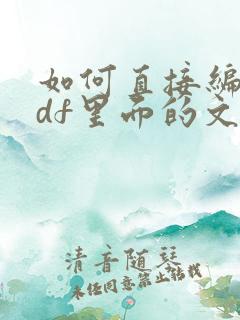 如何直接编
df里面的文
清音随琴
未经同意禁止转载